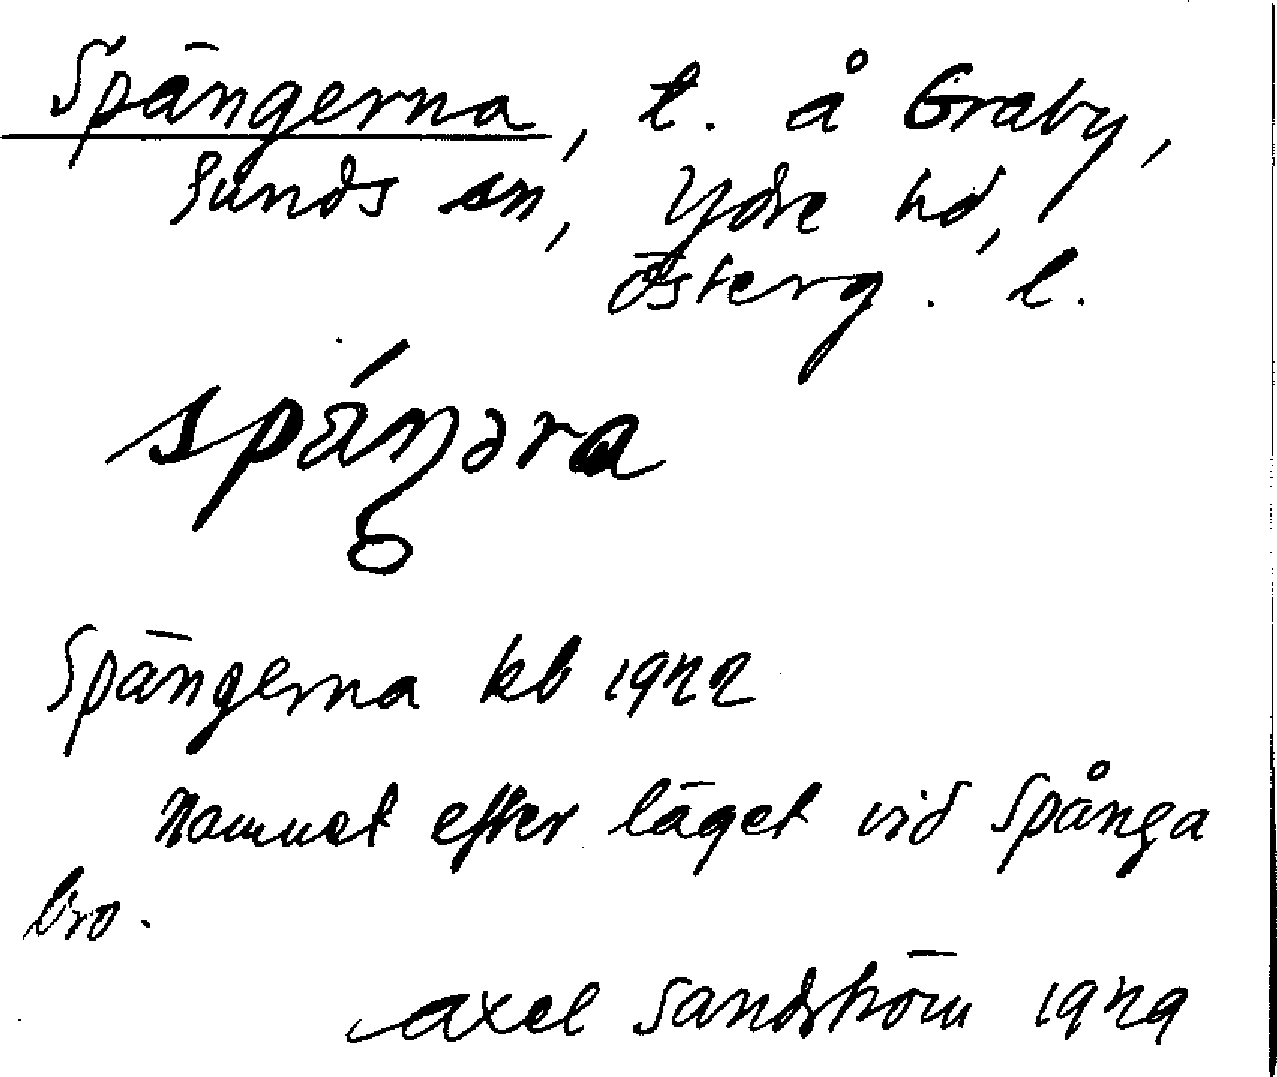 Spängerna, t. å Graby,
Sunds sn, Ydre hd,
Österg. l.
spáŋəra
Spängerna kb 1922
Namnet efter läget vid Spånga
bro.
Axel Sandström 1929